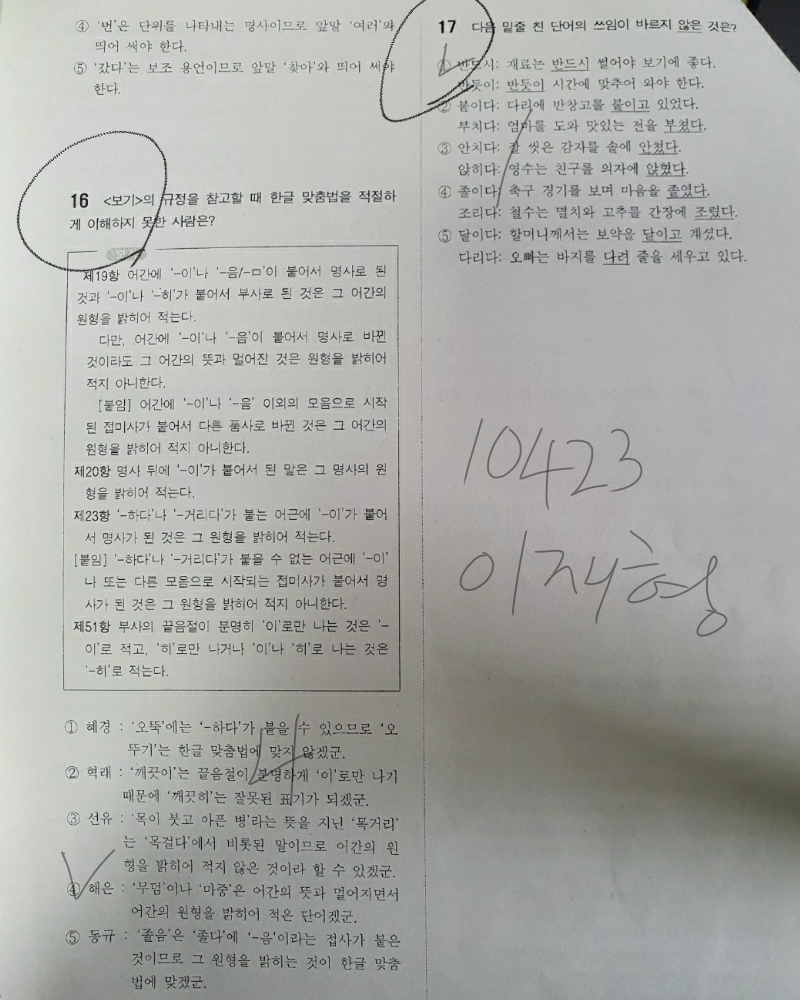 ④ '번'은 단위를 나타내는 명사이므로 앞말 '여러'와
띄어 써야 한다.
⑤ '갔다'는 보조 용언이므로 앞말 '찾아'와 띄어 써야
한다.
16 <보기>의 규정을 참고할 때 한글 맞춤법을 적절하
게 이해하지 못한 사람은?
제19항 어간에 '-이'나 '-음/-ㅁ'이 붙어서 명사로 된
것과 '-이'나 '-히'가 붙어서 부사로 된 것은 그 어간의
원형을 밝히어 적는다.
다만, 어간에 '-이'나 '-음'이 붙어서 명사로 바뀐
것이라도 그 어간의 뜻과 멀어진 것은 원형을 밝히어
적지 아니한다.
[붙임] 어간에 '-이'나 '-음' 이외의 모음으로 시작
된 접미사가 붙어서 다른 품사로 바뀐 것은 그 어간의
원형을 밝히어 적지 아니한다.
제20항 명사 뒤에 '-이'가 붙어서 된 말은 그 명사의 원
형을 밝히어 적는다.
제23항 '-하다'나 '-거리다'가 붙는 어근에 '-이'가 붙어
서 명사가 된 것은 그 원형을 밝히어 적는다.
[붙임] '-하다'나 '-거리다'가 붙을 수 없는 어근에 '-이'
나 또는 다른 모음으로 시작되는 접미사가 붙어서 명
사가 된 것은 그 원형을 밝히어 적지 아니한다.
제51항 부사의 끝음절이 분명히 '이'로만 나는 것은 '-
이'로 적고, '히'로만 나거나 '이'나 '히'로 나는 것은
'-히'로 적는다.
① 혜경 : '오뚝'에는 '-하다'가 붙을 수 있으므로 '오
뚜기'는 한글 맞춤법에 맞지 않겠군.
② 혁래 : '깨끗이'는 끝음절이 분명하게 '이'로만 나기
때문에 '깨끗히'는 잘못된 표기가 되겠군.
③ 선유 : '목이 붓고 아픈 병'라는 뜻을 지닌 '목거리'
는 '목걸다'에서 비롯된 말이므로 어간의 원
형을 밝히어 적지 않은 것이라 할 수 있겠군.
④ 해은 : '무덤'이나 '마중'은 어간의 뜻과 멀어지면서
어간의 원형을 밝히어 적은 단어겠군.
⑤ 동규 : '졸음'은 '졸다'에 '-음'이라는 접사가 붙은
것이므로 그 원형을 밝히는 것이 한글 맞춤
법에 맞겠군.
17 다음 밑줄 친 단어의 쓰임이 바르지 않은 것은?
① 반드시: 재료는 반드시 썰어야 보기에 좋다.
반듯이: 반듯이 시간에 맞추어 와야 한다.
② 붙이다: 다리에 반창고를 붙이고 있었다.
부치다: 엄마를 도와 맛있는 전을 부쳤다.
③ 안치다: 잘 씻은 감자를 솥에 안쳤다.
앉히다: 영수는 친구를 의자에 앉혔다.
④ 졸이다: 축구 경기를 보며 마음을 졸였다.
조리다: 철수는 멸치와 고추를 간장에 조렸다.
⑤ 달이다: 할머니께서는 보약을 달이고 계셨다.
다리다: 오빠는 바지를 다려 줄을 세우고 있다.
10423
이재형